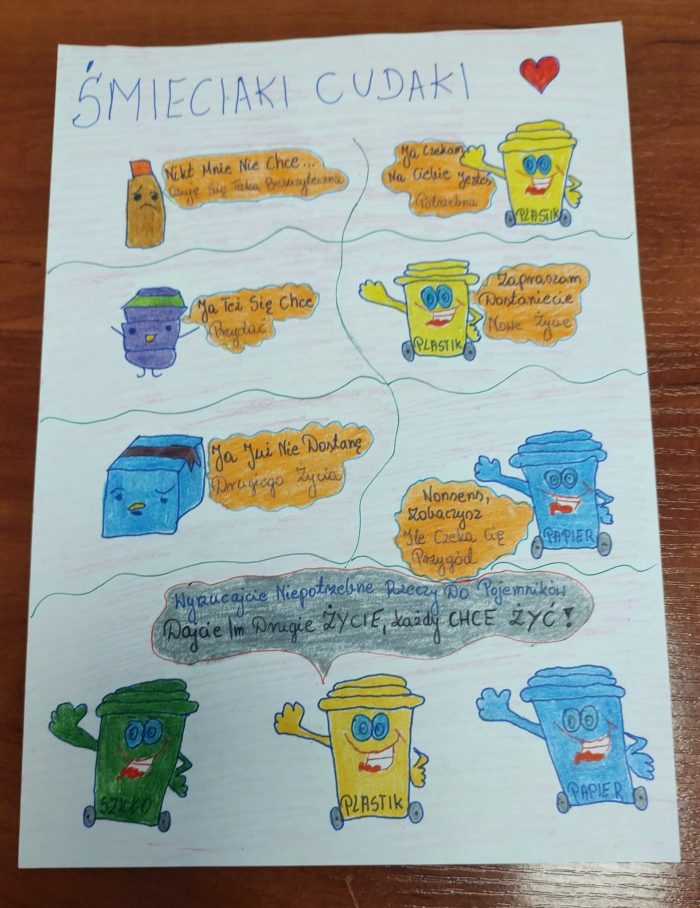 ŚMIECIAKI CUDAKI
Nikt Mnie Nie Chce...
Czuję Się Taka Bezużyteczna
Ja Czekam
Na Ciebie Jesteś
Potrzebna
PLASTIK
Ja Też Się Chcę
Przydać
Zapraszam
Dostaniecie
Nowe Życie
PLASTIK
Ja Już Nie Dostanę
Drugiego Życia
Nonsens,
Zobaczysz
Ile Czeka Cię
Przygód
PAPIER
Wyrzucajcie Niepotrzebne Rzeczy Do Pojemników
Dajcie Im Drugie ŻYCIE, każdy CHCE ŻYĆ!
SZKŁO
PLASTIK
PAPIER